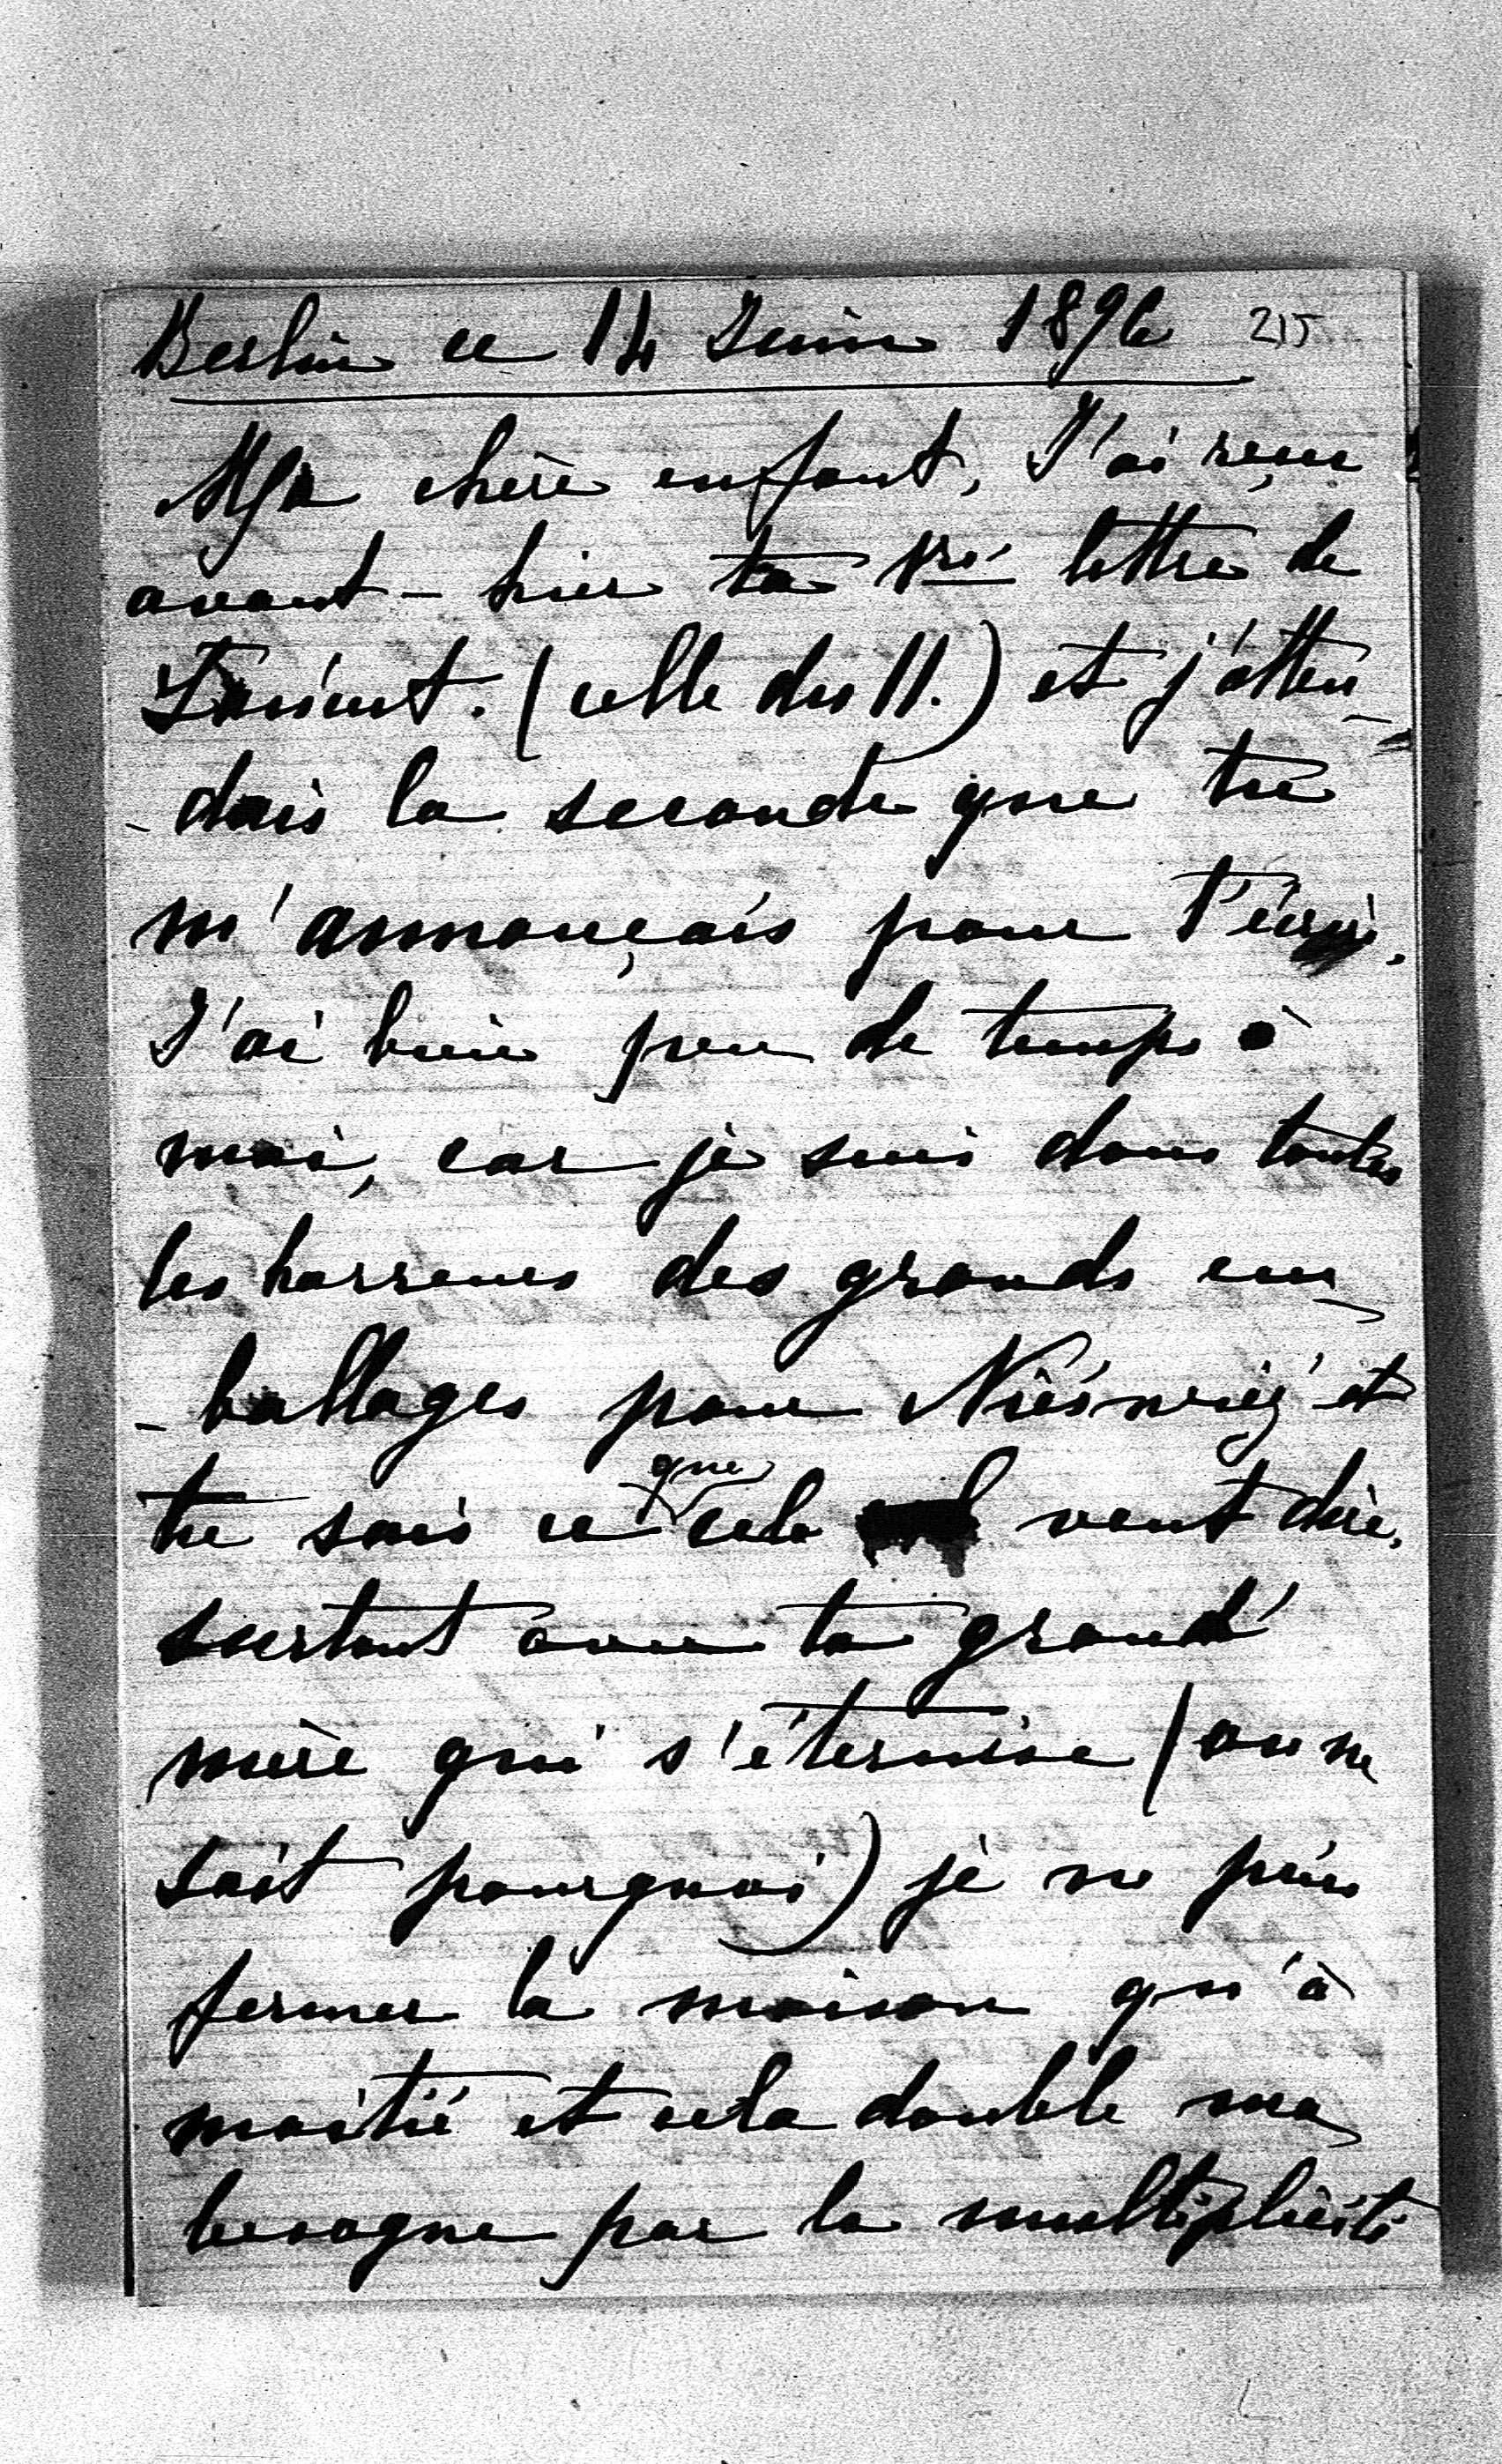 Berlin ce 14 Juin 1896 215
Ma chère enfant, J'ai reçu
avant-hier ta 1re lettre de
Łańcut. (celle du 11.) et j'atten-
-dais la seconde que tu
m'annonçais pour t'écrire.
J'ai bien peu de temps à
moi, car je suis dans toutes
les horreurs des grands em-
-ballages pour Nieśwież et
tu sais ce que cela veut dire,
surtout avec ta grand'
mère qui s'éternise (on ne
sait pourquoi) je ne puis
fermer la maison qu'à
moitié et cela double ma
besogne par la multiplicité